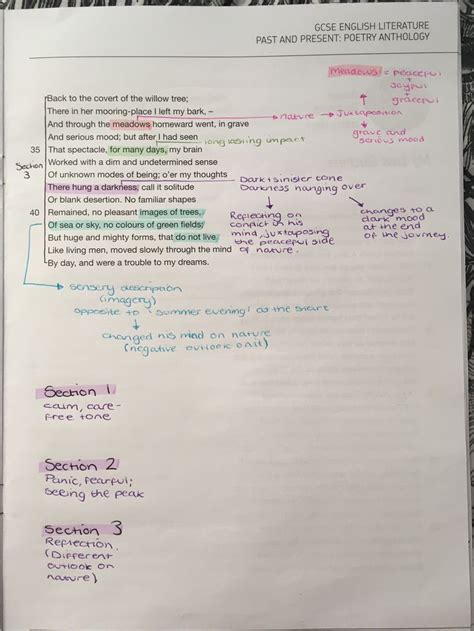 GCSE ENGLISH LITERATURE
PAST AND PRESENT: POETRY ANTHOLOGY
meadows = peaceful
+
joyful
+
graceful
Back to the covert of the willow tree;
There in her mooring-place I left my bark, –
And through the meadows homeward went, in grave
And serious mood; but after I had seen
35 That spectacle, for many days, my brain
Worked with a dim and undetermined sense
Of unknown modes of being; o'er my thoughts
There hung a darkness, call it solitude
Or blank desertion. No familiar shapes
40 Remained, no pleasant images of trees,
Of sea or sky, no colours of green fields;
But huge and mighty forms, that do not live
Like living men, moved slowly through the mind
By day, and were a trouble to my dreams.
Section
3
nature → Juxtaposition
grave and
serious mood
long lasting impact
Dark + sinister tone
Darkness hanging over
Reflecting on
conflict in his
mind, juxtaposing
the peaceful side
of nature.
changes to a
dark mood
at the end
of the journey.
sensory description
(imagery)
opposite to 'summer evening' as the start
changed his mind on nature
(negative outlook on it)
Section 1
calm, care-
free tone
Section 2
Panic, fearful;
seeing the peak
Section 3
Reflection.
(Different
outlook on
nature)